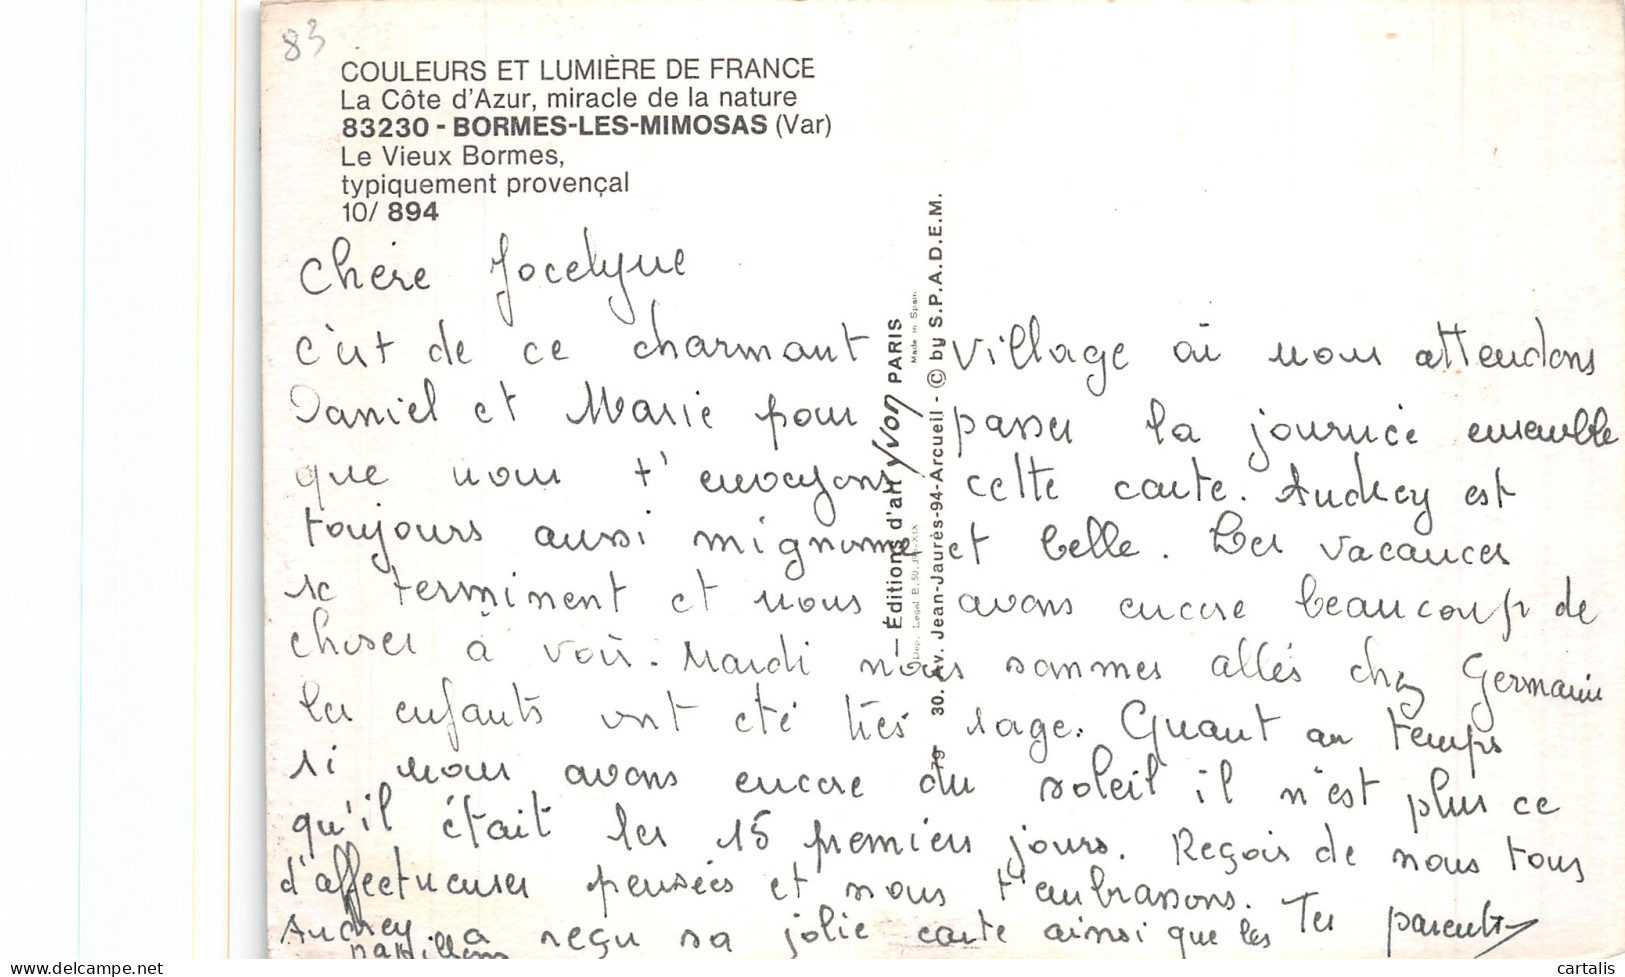 83
COULEURS ET LUMIÈRE DE FRANCE
La Côte d'Azur, miracle de la nature
83230 - BORMES-LES-MIMOSAS (Var)
Le Vieux Bormes,
typiquement provençal
10/ 894
Chère Jocelyne
c'est de ce charmant village où nous attendons
Daniel et Marie pour passer la journée ensemble
que nous t'envoyons cette carte. Audrey est
toujours aussi mignonne et belle. Les vacances
se terminent et nous avons encore beaucoup de
choses à voir. Mardi nous sommes allés chez Germaine
les enfants ont été très sage. Quant au temps
si nous avons encore du soleil il n'est plus ce
qu'il était les 15 premiers jours. Reçois de nous tous
d'affectueuses pensées et nous t'embrassons. Tes parents
Audrey a reçu sa jolie carte ainsi que les
papillons
— Éditions d'art YVON PARIS
Made in Spain
Dep. Legal B. 50.
30. Av. Jean-Jaurès-94-Arcueil - © by S.P.A.D.E.M.
79
cartalis
www.delcampe.net